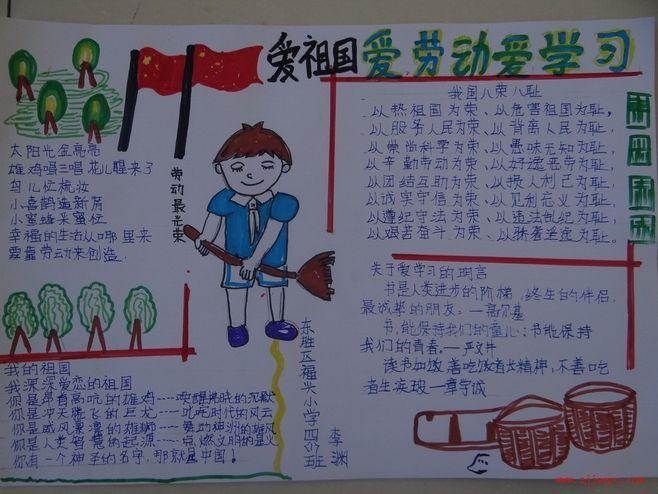 爱祖国爱劳动爱学习
太阳光金亮亮
雄鸡唱三唱花儿醒来了
鸟儿忙梳妆
小喜鹊造新房
小蜜蜂采蜜忙
幸福的生活从哪里来
要靠劳动来创造
劳动最光荣
我国八荣八耻
以热爱祖国为荣、以危害祖国为耻，
以服务人民为荣、以背离人民为耻，
以崇尚科学为荣、以愚昧无知为耻，
以辛勤劳动为荣、以好逸恶劳为耻，
以团结互助为荣、以损人利己为耻，
以诚实守信为荣、以见利忘义为耻，
以遵纪守法为荣、以违法乱纪为耻，
以艰苦奋斗为荣、以骄奢淫逸为耻。
关于爱学习的明言
书是人类进步的阶梯，终生的伴侣，
最诚挚的朋友。—高尔基
书，能保持我们的童心；书能保持
我们的青春。—严文井
读书如饭，善吃饭者长精神，不善吃
者生疾玻—章学诚
我的祖国
我深深爱恋的祖国
你是昂首高吭的雄鸡----唤醒拂晓的沉默
你是冲天腾飞的巨龙----叱咤时代的风云
你是威风凛凛的雄狮----舞动神州的雄风
你是人类智慧的起源----点燃文明的星火
你有一个神圣的名字，那就是中国！
东胜区福兴小学四(1)班
李渊